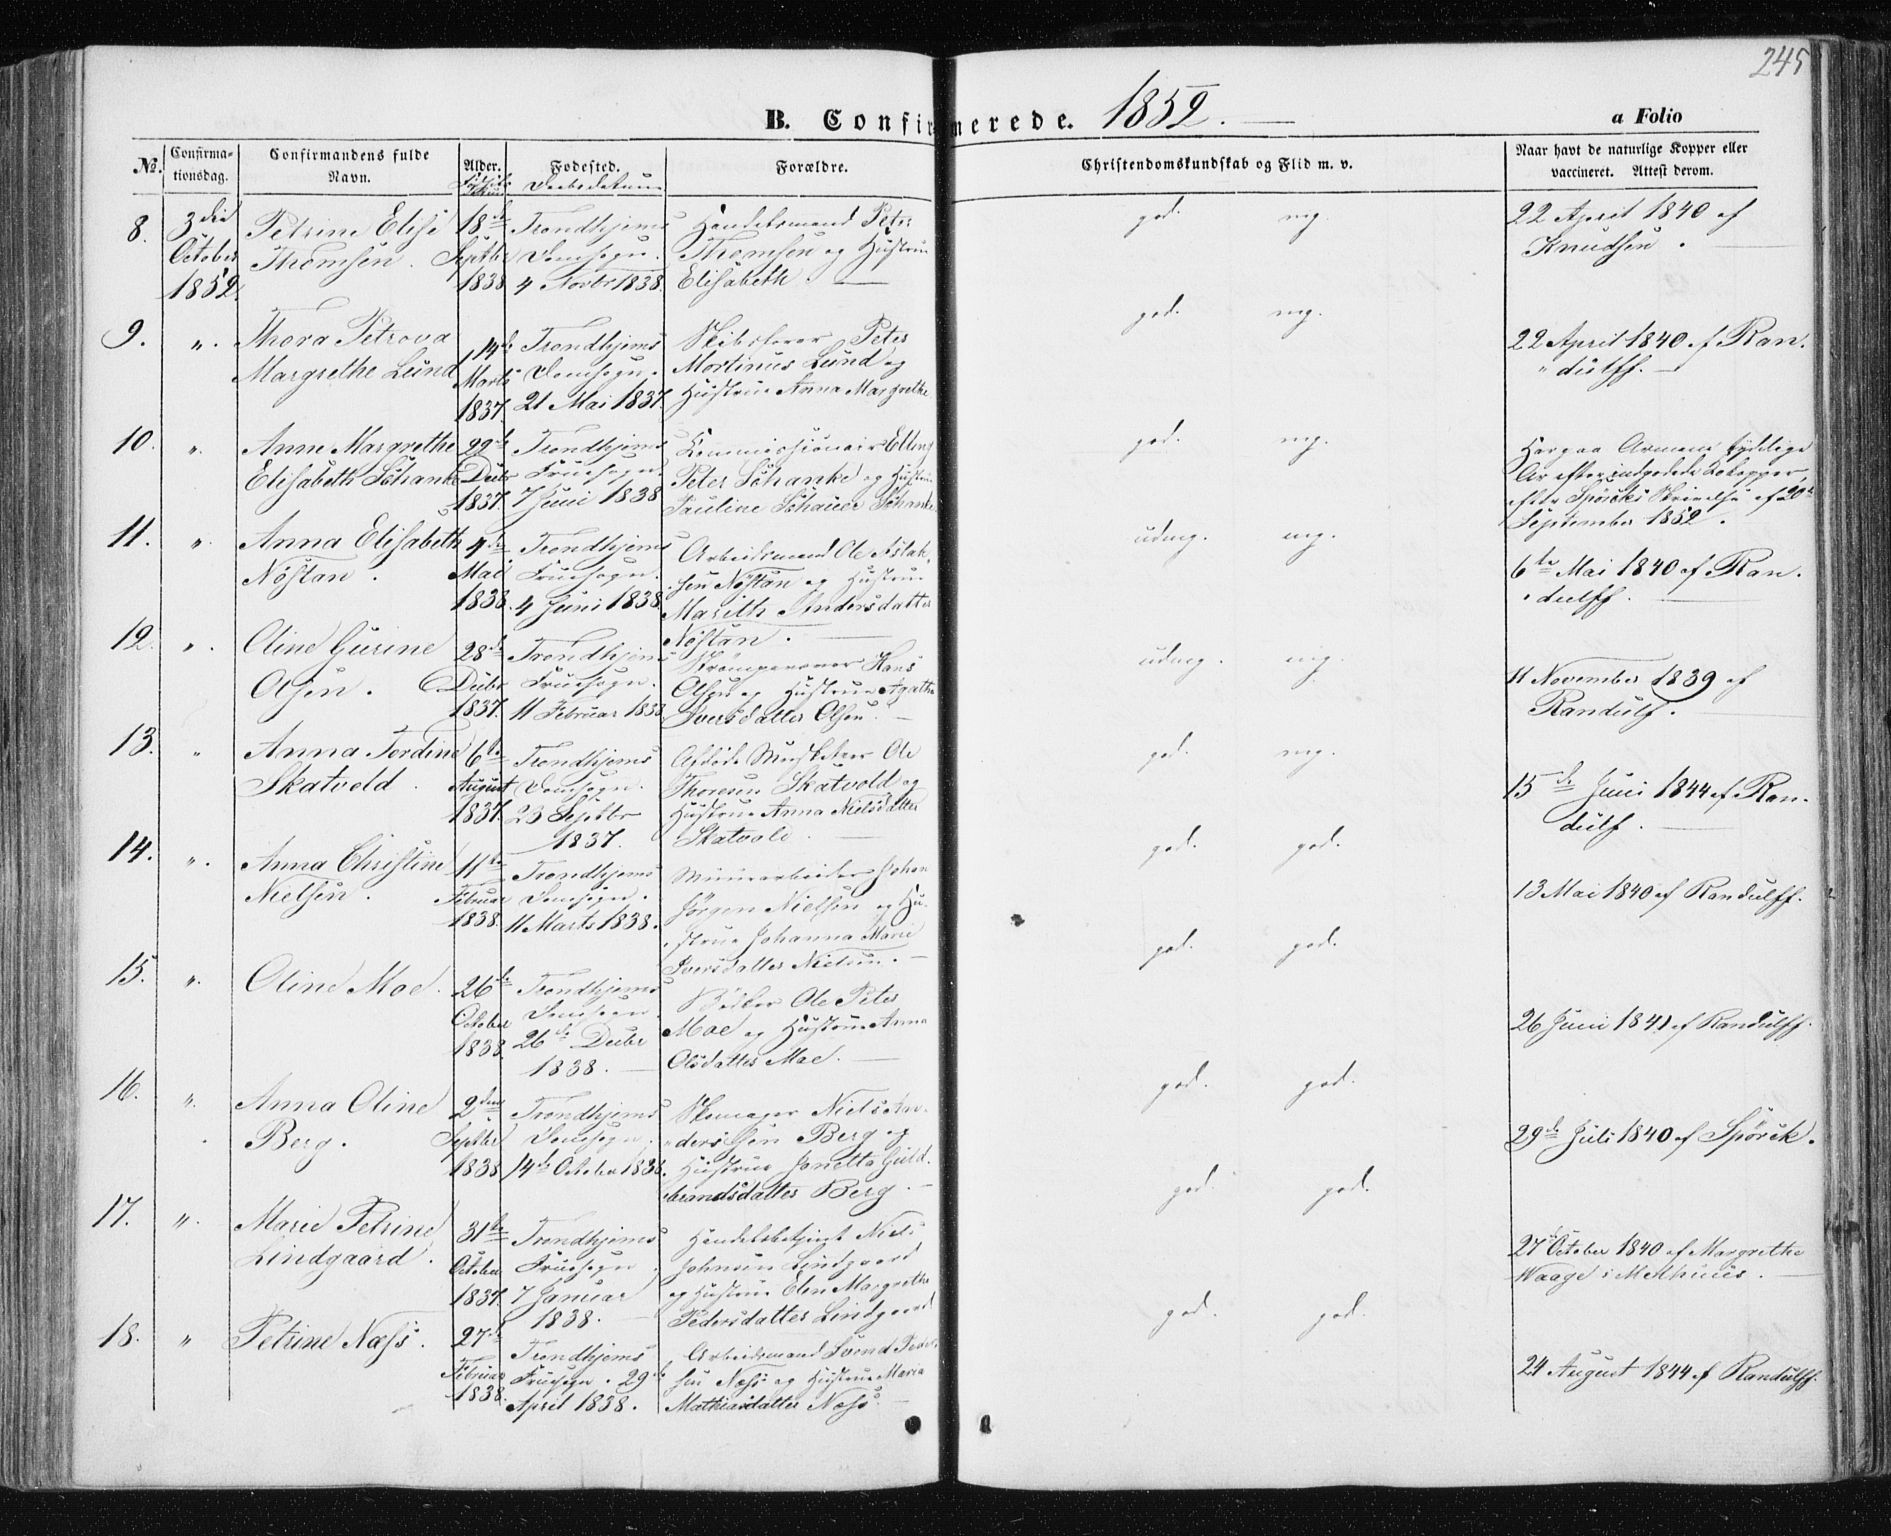 245
B. Confirmerede. 1852. a Folio
No. Confirma-tionsdag. Confirmandens fulde Navn. Alder. Fødested. Forældre. Christendomskundskab og Flid m. v. Naar havt de naturlige Kopper eller vaccineret. Attest derom.
Daabsdatum
8. 3die October 1852. Petrine Elise Thomsen. 18de Septbr 1838 Trondhjems Domsogn. 4 Novbr 1838. Handelsmand Peter Thomsen og Hustrue Elisabeth. god. mg. 22 April 1840 af Knudsen.
9. ". Thora Petrova Margrethe Lund 14de Marts 1837. Trondhjems Domsogn. 21 Mai 1837. Peter Mortinus Lund og Hustrue Anna Margrethe god. mg. 22 April 1840 af Randulff.
10. ". Anne Margrethe Elisabeth Schanke 22de Decbr 1837. Trondhjems Fruesogn. 7 Juni 1838 Commissionair Elling Peter Schanke og Hustrue Pauline Schanke god. mg. Har paa Armene tydelige Ar efter indpodede Kokopper, efter Spörcks Skrivelse af 20de September 1852.
11. ". Anna Elisabeth Nöstan. 4de Mai 1838. Trondhjems Fruesogn. 4 Juni 1838. Arbeidsmand Ole Aslaksen Nöstan og Hustrue Marith Andersdatter Nöstan. udmg. mg. 6te Mai 1840 af Randulff.
12. ". Oline Gurine Olsen. 28de Decbr 1837. Trondhjems Fruesogn. 11 Februar 1838 Hans Olsen og Hustrue Agathe Iversdatter Olsen. udmg. mg. 11 November 1839 af Randulf.
13. " Anna Tordine Skatvold. 6te August 1837. Trondhjems Domsogn. 23 Septbr 1837. Afdöde Musketeer Ole Thoresen Skatvold og Hustrue Anna Nielsdatter Skatvold. god. mg. 15de Juni 1844 af Randulf.
14. ". Anna Christine Nielsen. 11te Februar 1838. Trondhjems Domsogn. 11 Marts 1838. Muurarbeider Johan Jörgen Nielsen og Hustrue Johanna Marie Iversdatter Nielsen. god. god. 13 Mai 1840 af Randulff.
15. ". Oline Moe. 26de October 1838. Trondhjems Domsogn. 26de Decbr 1838. Bödker Ole Peter Moe og Hustrue Anna Olsdatter Moe. god. god. 26 Juni 1841 af Randulff.
16. ". Anna Oline Berg. 2den Septbr 1838 Trondhjems Domsogn. 14de October 1838. Skomager Niels Andersen Berg og Hustrue Janetta Guldbrandsdatter Berg. god. god. 29de Juli 1840 af Spörck.
17. ". Marie Petrine Lindgaard. 31te October 1837. Trondhjems Fruesogn. 7 Januar 1838. Handelsbetjent Niels Johnsen Lindgaard og Hustrue Elen Margrethe Pedersdatter Lindgaard god. god. 27de October 1840 af Margrethe Waage i Melhuus.
18. " Petrine Næss. 27de Februar 1838. Trondhjems Fruesogn. 29de April 1838. Arbeidsmand Svend Pedersen Næss og Hustrue Maria Mathiasdatter Næss. god. god. 24 August 1844 af Randulff.